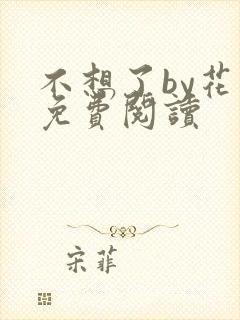 不想了by花
免費閱讀
宋菲